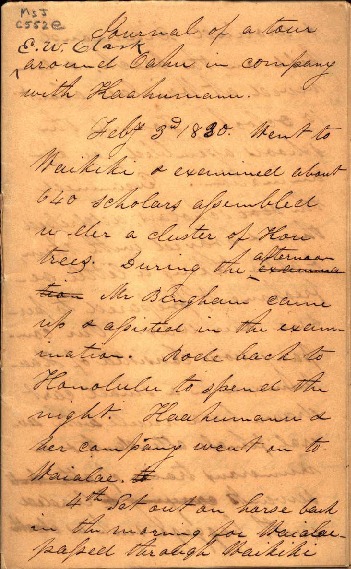 MsJ
C552e
Journal of a tour
E. W. Clark
around Oahu in company
with Kaahumanu.
Feby 3d 1830. Went to
Waikiki & examined about
640 scholars assembled
under a cluster of Hou
trees. During the afternoon examina
tion Mr Bingham came
up & assisted in the exam-
ination. Rode back to
Honolulu to spend the
night. Kaahumanu &
her company went on to
Waialae.
4th Set out on horse back
in the morning for Waialae
passed through Waikiki